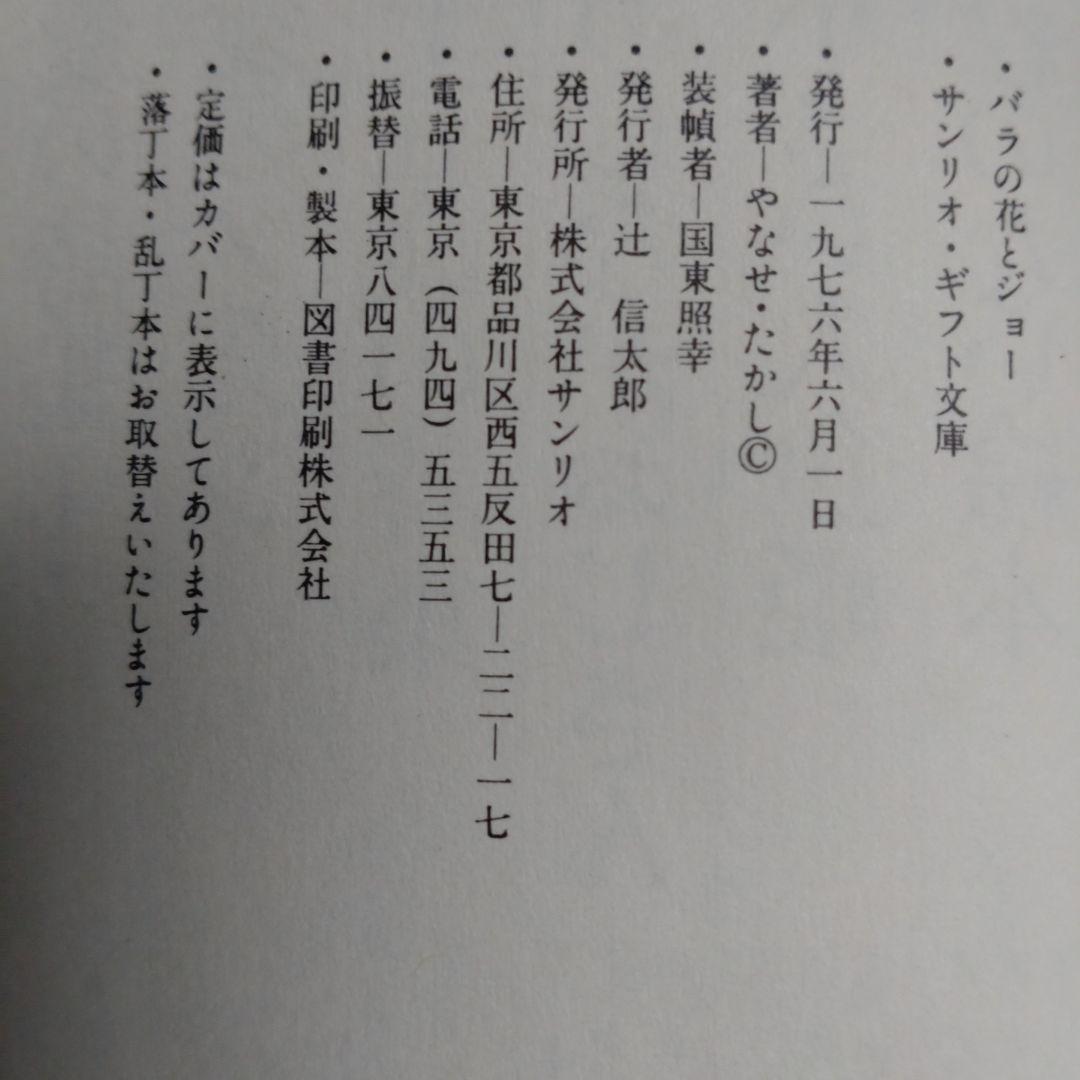 ・バラの花とジョー
・サンリオ・ギフト文庫
・発行―一九七六年六月一日
・著者―やなせ・たかし©
・装幀者―国東照幸
・発行者―辻 信太郎
・発行所―株式会社サンリオ
・住所―東京都品川区西五反田七―二二―一七
・電話―東京(四九四)五三五三
・振替―東京八四一七一
・印刷・製本―図書印刷株式会社
・定価はカバーに表示してあります
・落丁本・乱丁本はお取替えいたします